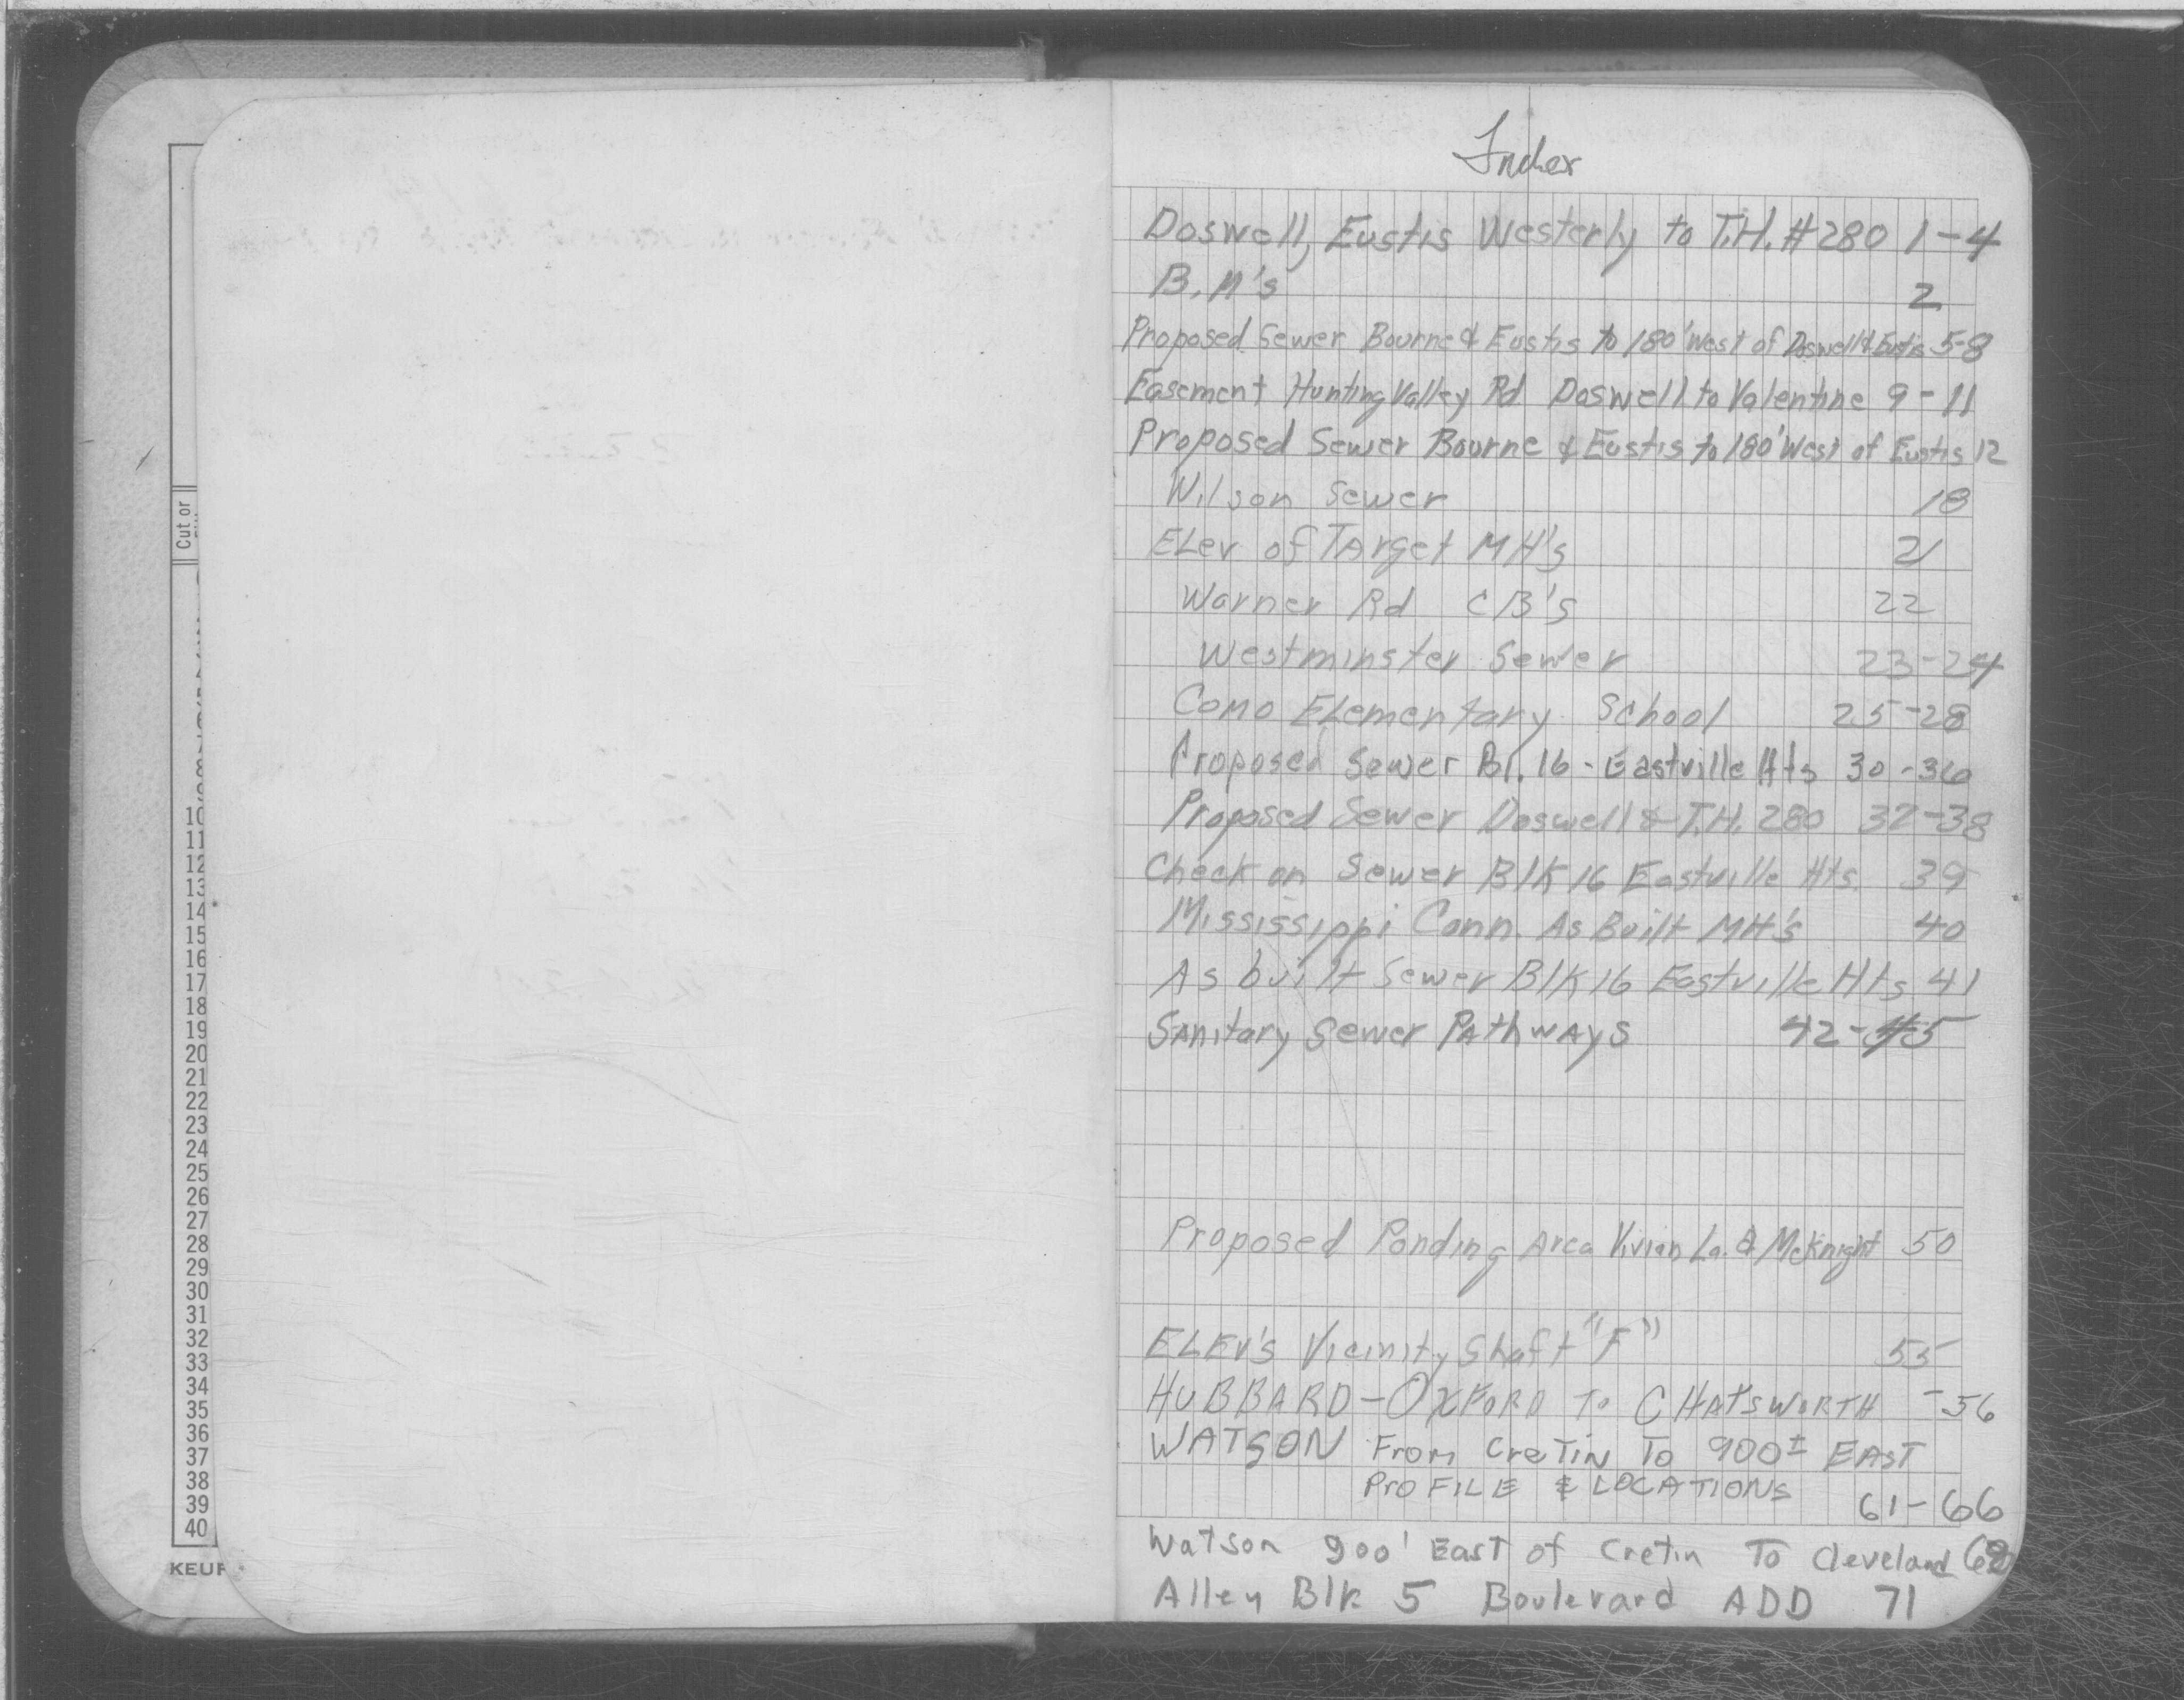 Cut or
10
11
12
13
14
15
16
17
18
19
20
21
22
23
24
25
26
27
28
29
30
31
32
33
34
35
36
37
38
39
40
KEUF
Index
Doswell, Eustis Westerly to T.H. #280 1-4
B.M's 2
Proposed Sewer Bourne & Eustis to 180' West of Doswell & Eustis 5-8
Easement Hunting Valley Rd Doswell to Valentine 9-11
Proposed Sewer Bourne & Eustis to 180' West of Eustis 12
Wilson Sewer 18
ELev of TArget MH's 21
Warner Rd CB's 22
Westminster Sewer 23-24
Como ELementary School 25-28
Proposed Sewer Bl. 16 - Eastville Hts 30-36
Proposed Sewer Doswell & T.H. 280 37-38
Check on Sewer Blk 16 Eastville Hts. 39
Mississippi Conn. As Built MH's 40
As built Sewer Blk 16 Eastville Hts 41
SAnitary Sewer PAthwAys 42-45
Proposed Ponding Area Vivian La. & McKnight 50
ELEV'S Vicinity Shaft "F" 55
HUBBARD-OXFORD To CHATSWORTH -56
WATSON From CreTiN To 900± EAST
PROFILE & LOCATIONS 61-66
Watson 900' East of Cretin To Cleveland
Alley Blk 5 Boulevard ADD 71